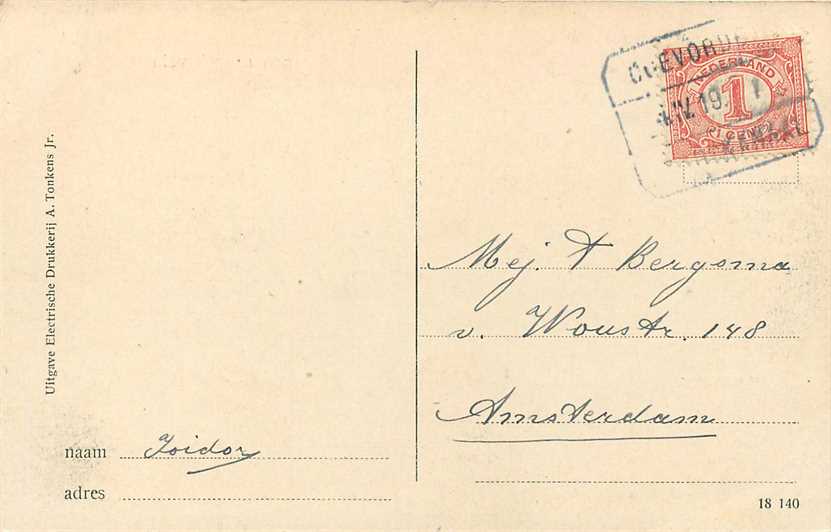 Uitgave Electrische Drukkerij A. Tonkens Jr.
COEVORDEN
NEDERLAND
IV. 19
1
1 CENT
Mej. T Bergsma
v. Woustr. 148
Amsterdam
naam Isidor
adres
18 140